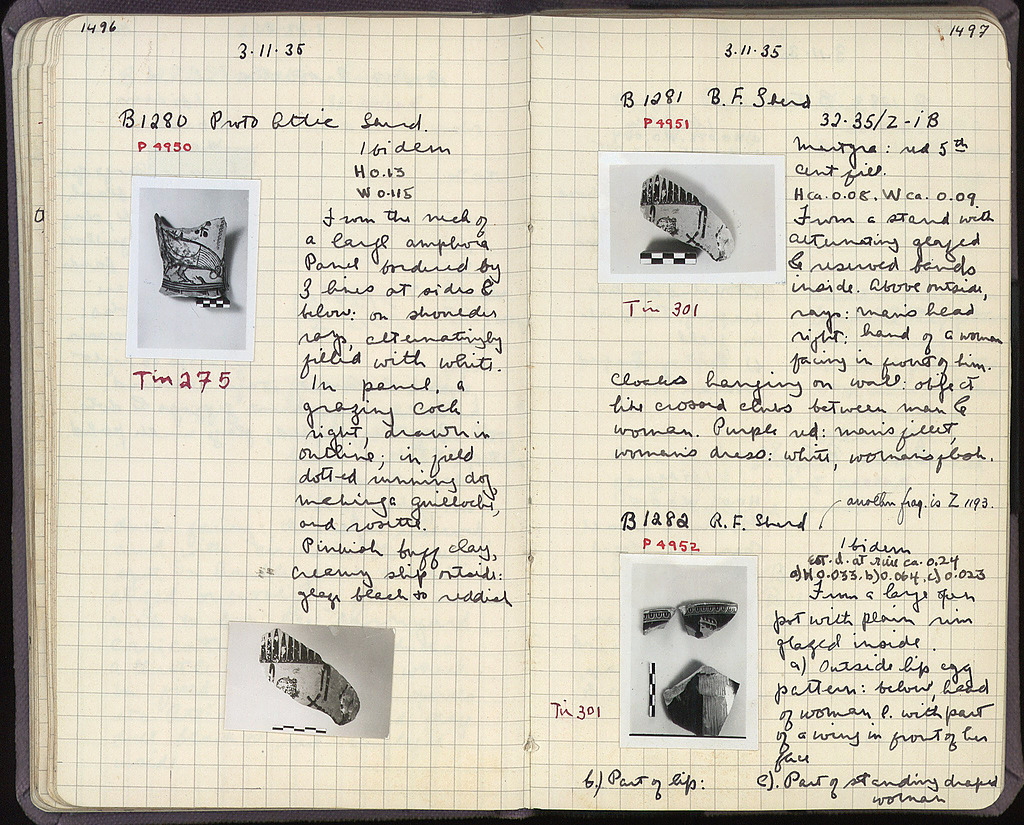 1496
3·11·35
B1280 Proto Attic Sherd.
P 4950
Ibidem
H 0.13
W 0.115
From the neck of
a large amphora
Panel bordered by
3 lines at sides &
below: on shoulder
rays, alternatingly
filled with white.
In panel, a
grazing cock
right, drawn in
outline; in field
dotted running dog
making a guilloche,
and rosette.
Pinkish buff clay,
creamy slip outside:
glaze black to reddish
Tin 275
1497
3·11·35
B 1281 B.F. Sherd
P 4951
32·35/Z-iB
red 5th
cent fill.
H ca. 0.08. W ca. 0.09.
From a stand with
alternating glazed
& reserved bands
inside. Above outside,
rays: man's head
right: hand of a woman
facing in front of him.
Cloaks hanging on wall: object
like crossed clubs between man &
woman. Purple red: man's fillet,
woman's dress: white, woman's flesh.
Tin 301
another frag. is Z 1193.
B 1282 R.F. Sherd
P 4952
Ibidem
est. d. at rim ca. 0.24
a) H 0.033. b) 0.064, c) 0.023
From a large open
pot with plain rim
glazed inside.
a) Outside lip egg
pattern: below, head
of woman l. with part
of a wing in front of her
face
Tin 301
b.) Part of lip:
c). Part of standing draped
woman